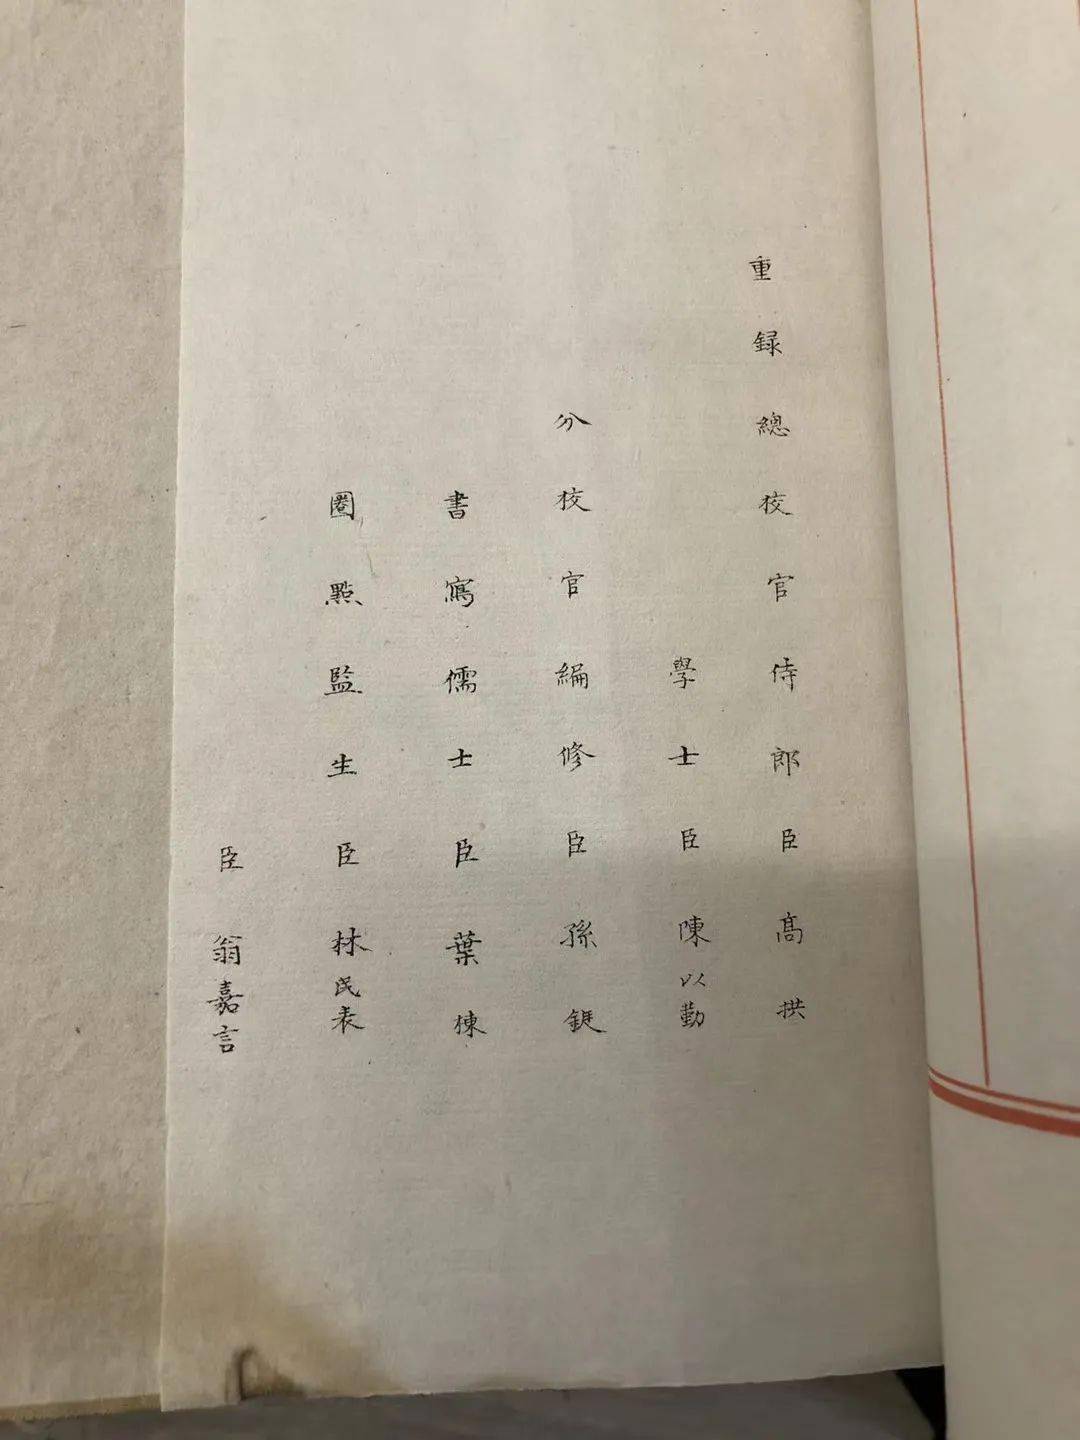 重録總校官侍郎臣高拱
學士臣陳以勤
分校官編修臣孫鋌
書寫儒士臣葉棟
圈點監生臣林民表
臣翁嘉言